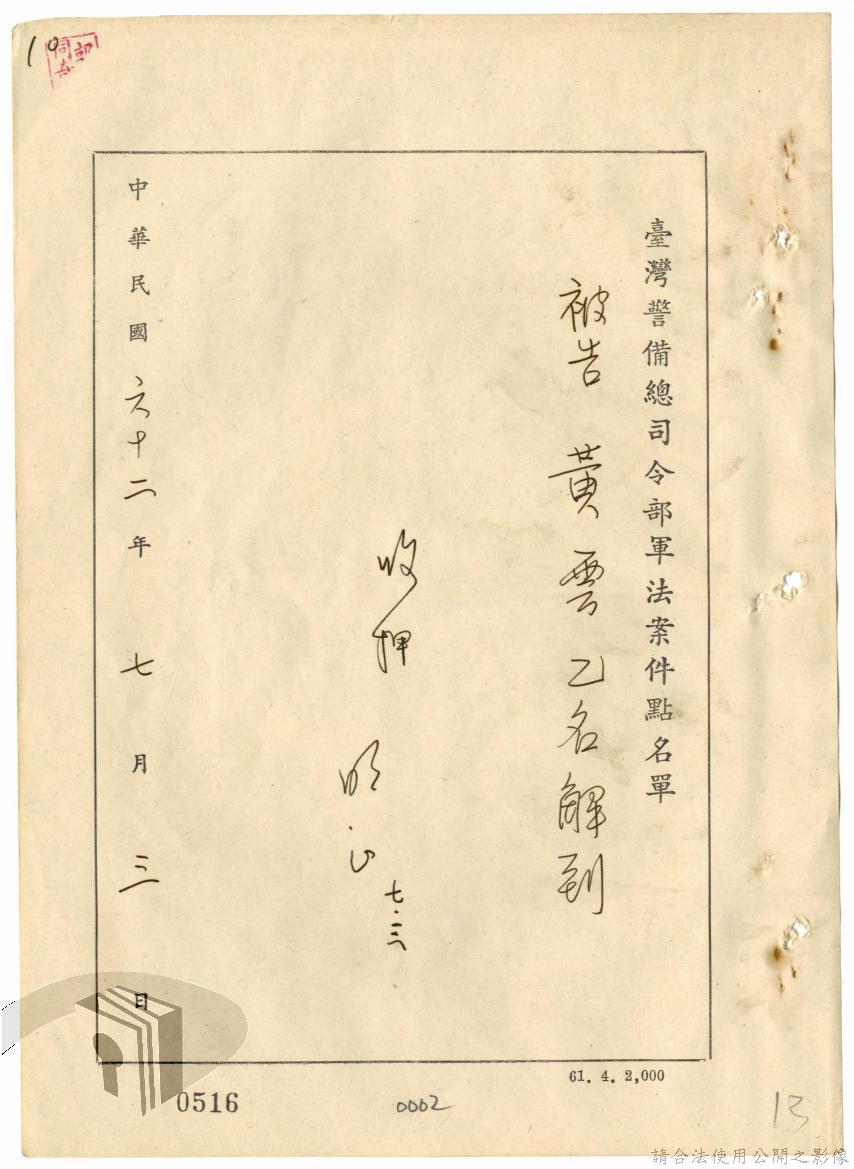 臺灣警備總司令部軍法案件點名單
被告 黃雲乙名解到
收押
七.三
中華民國六十二年七月三日
61. 4. 2,000
0516
0002
請合法使用公開之影像